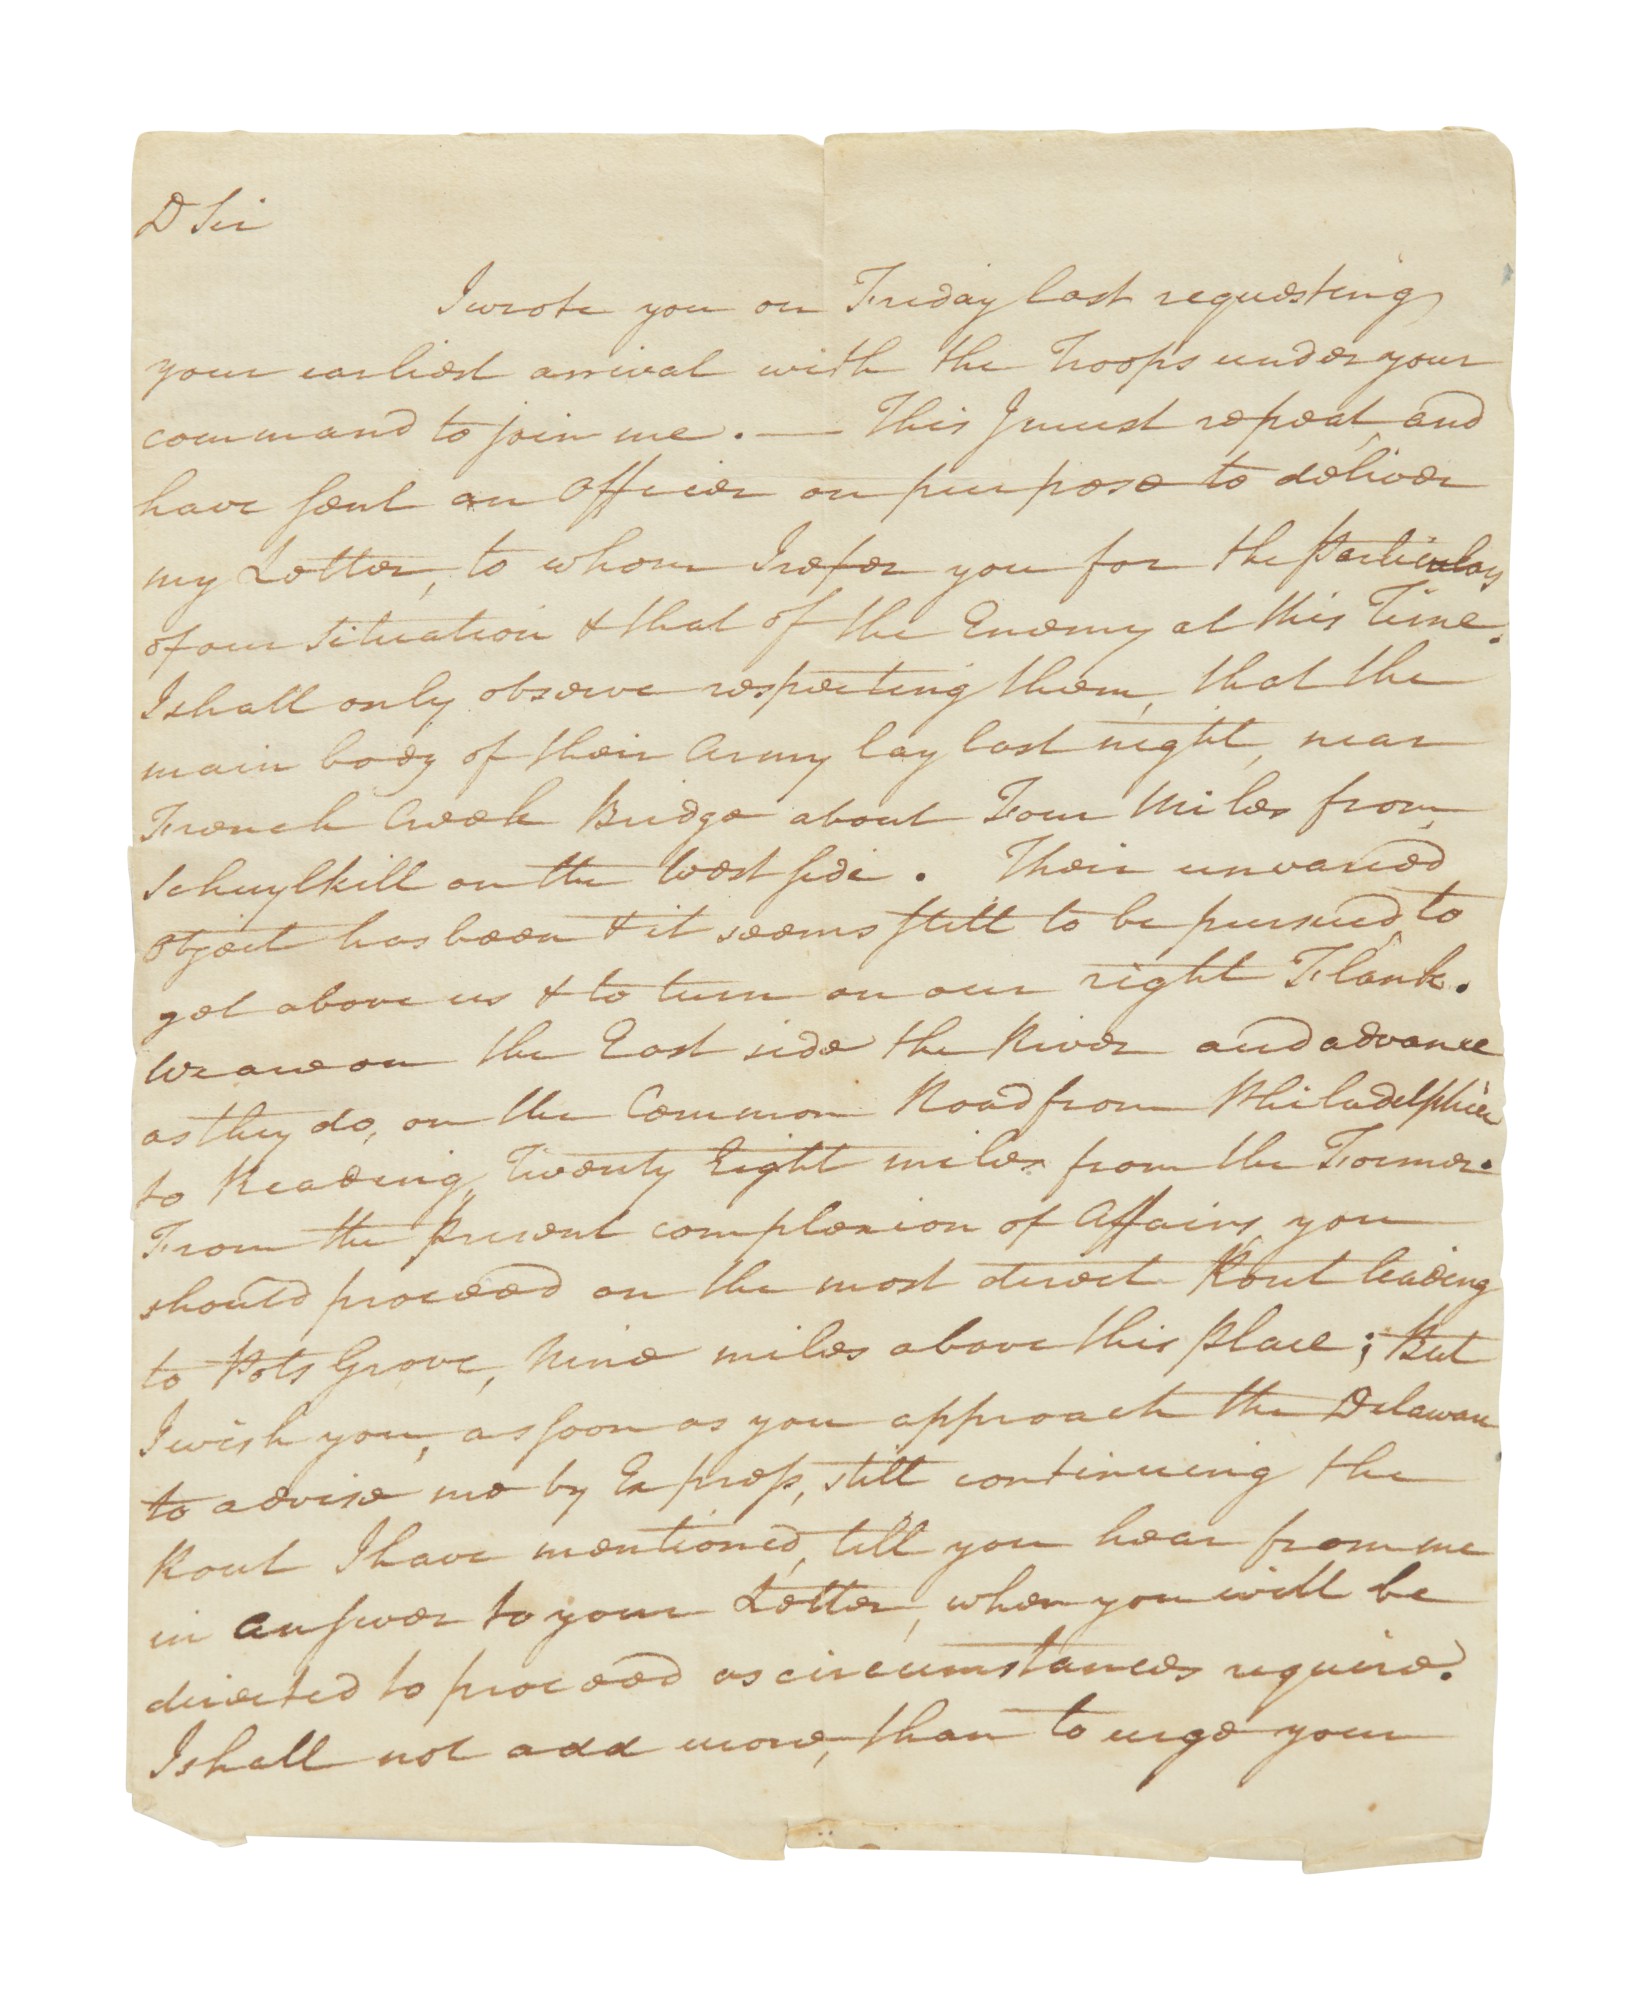 D Sir
I wrote you on Friday last requesting
your earliest arrival with the Troops under your
command to join me. — This I must repeat, and
have sent an Officer on purpose to deliver
my Letter, to whom I refer you for the Particulars
of our situation & that of the Enemy at this Time.
I shall only observe respecting them, that the
main body of their Army lay last night, near
French Creek Bridge about Four Miles from
Schuylkill on the West side. Their unvaried
Object has been & it seems still to be pursued, to
get above us & to turn on our right Flank.
We are on the East side the River and advance
as they do, on the Common Road from Philadelphia
to Reading, Twenty Eight miles from the Former.
From the present complexion of Affairs, you
should proceed on the most direct Rout leading
to Pots Grove, Nine miles above this place; But
I wish you, as soon as you approach the Delaware
to advise me by Express, still continuing the
Rout I have mentioned, till you hear from me
in answer to your Letter, when you will be
directed to proceed as circumstances require.
I shall not add more, than to urge your